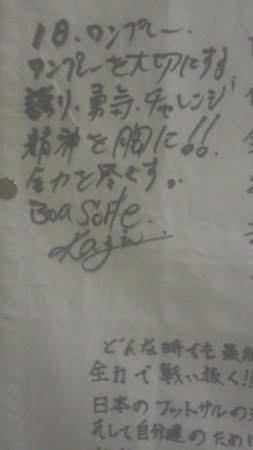 1日.ワンプレー.
ワンプレーを大切にする
誇り・勇気・チャレンジ
精神を胸に!!
全力を尽くす。
BOA SORTE.
どんな時でも最
全力で戦い抜く!!
日本のフットサルの
そして自分達のために